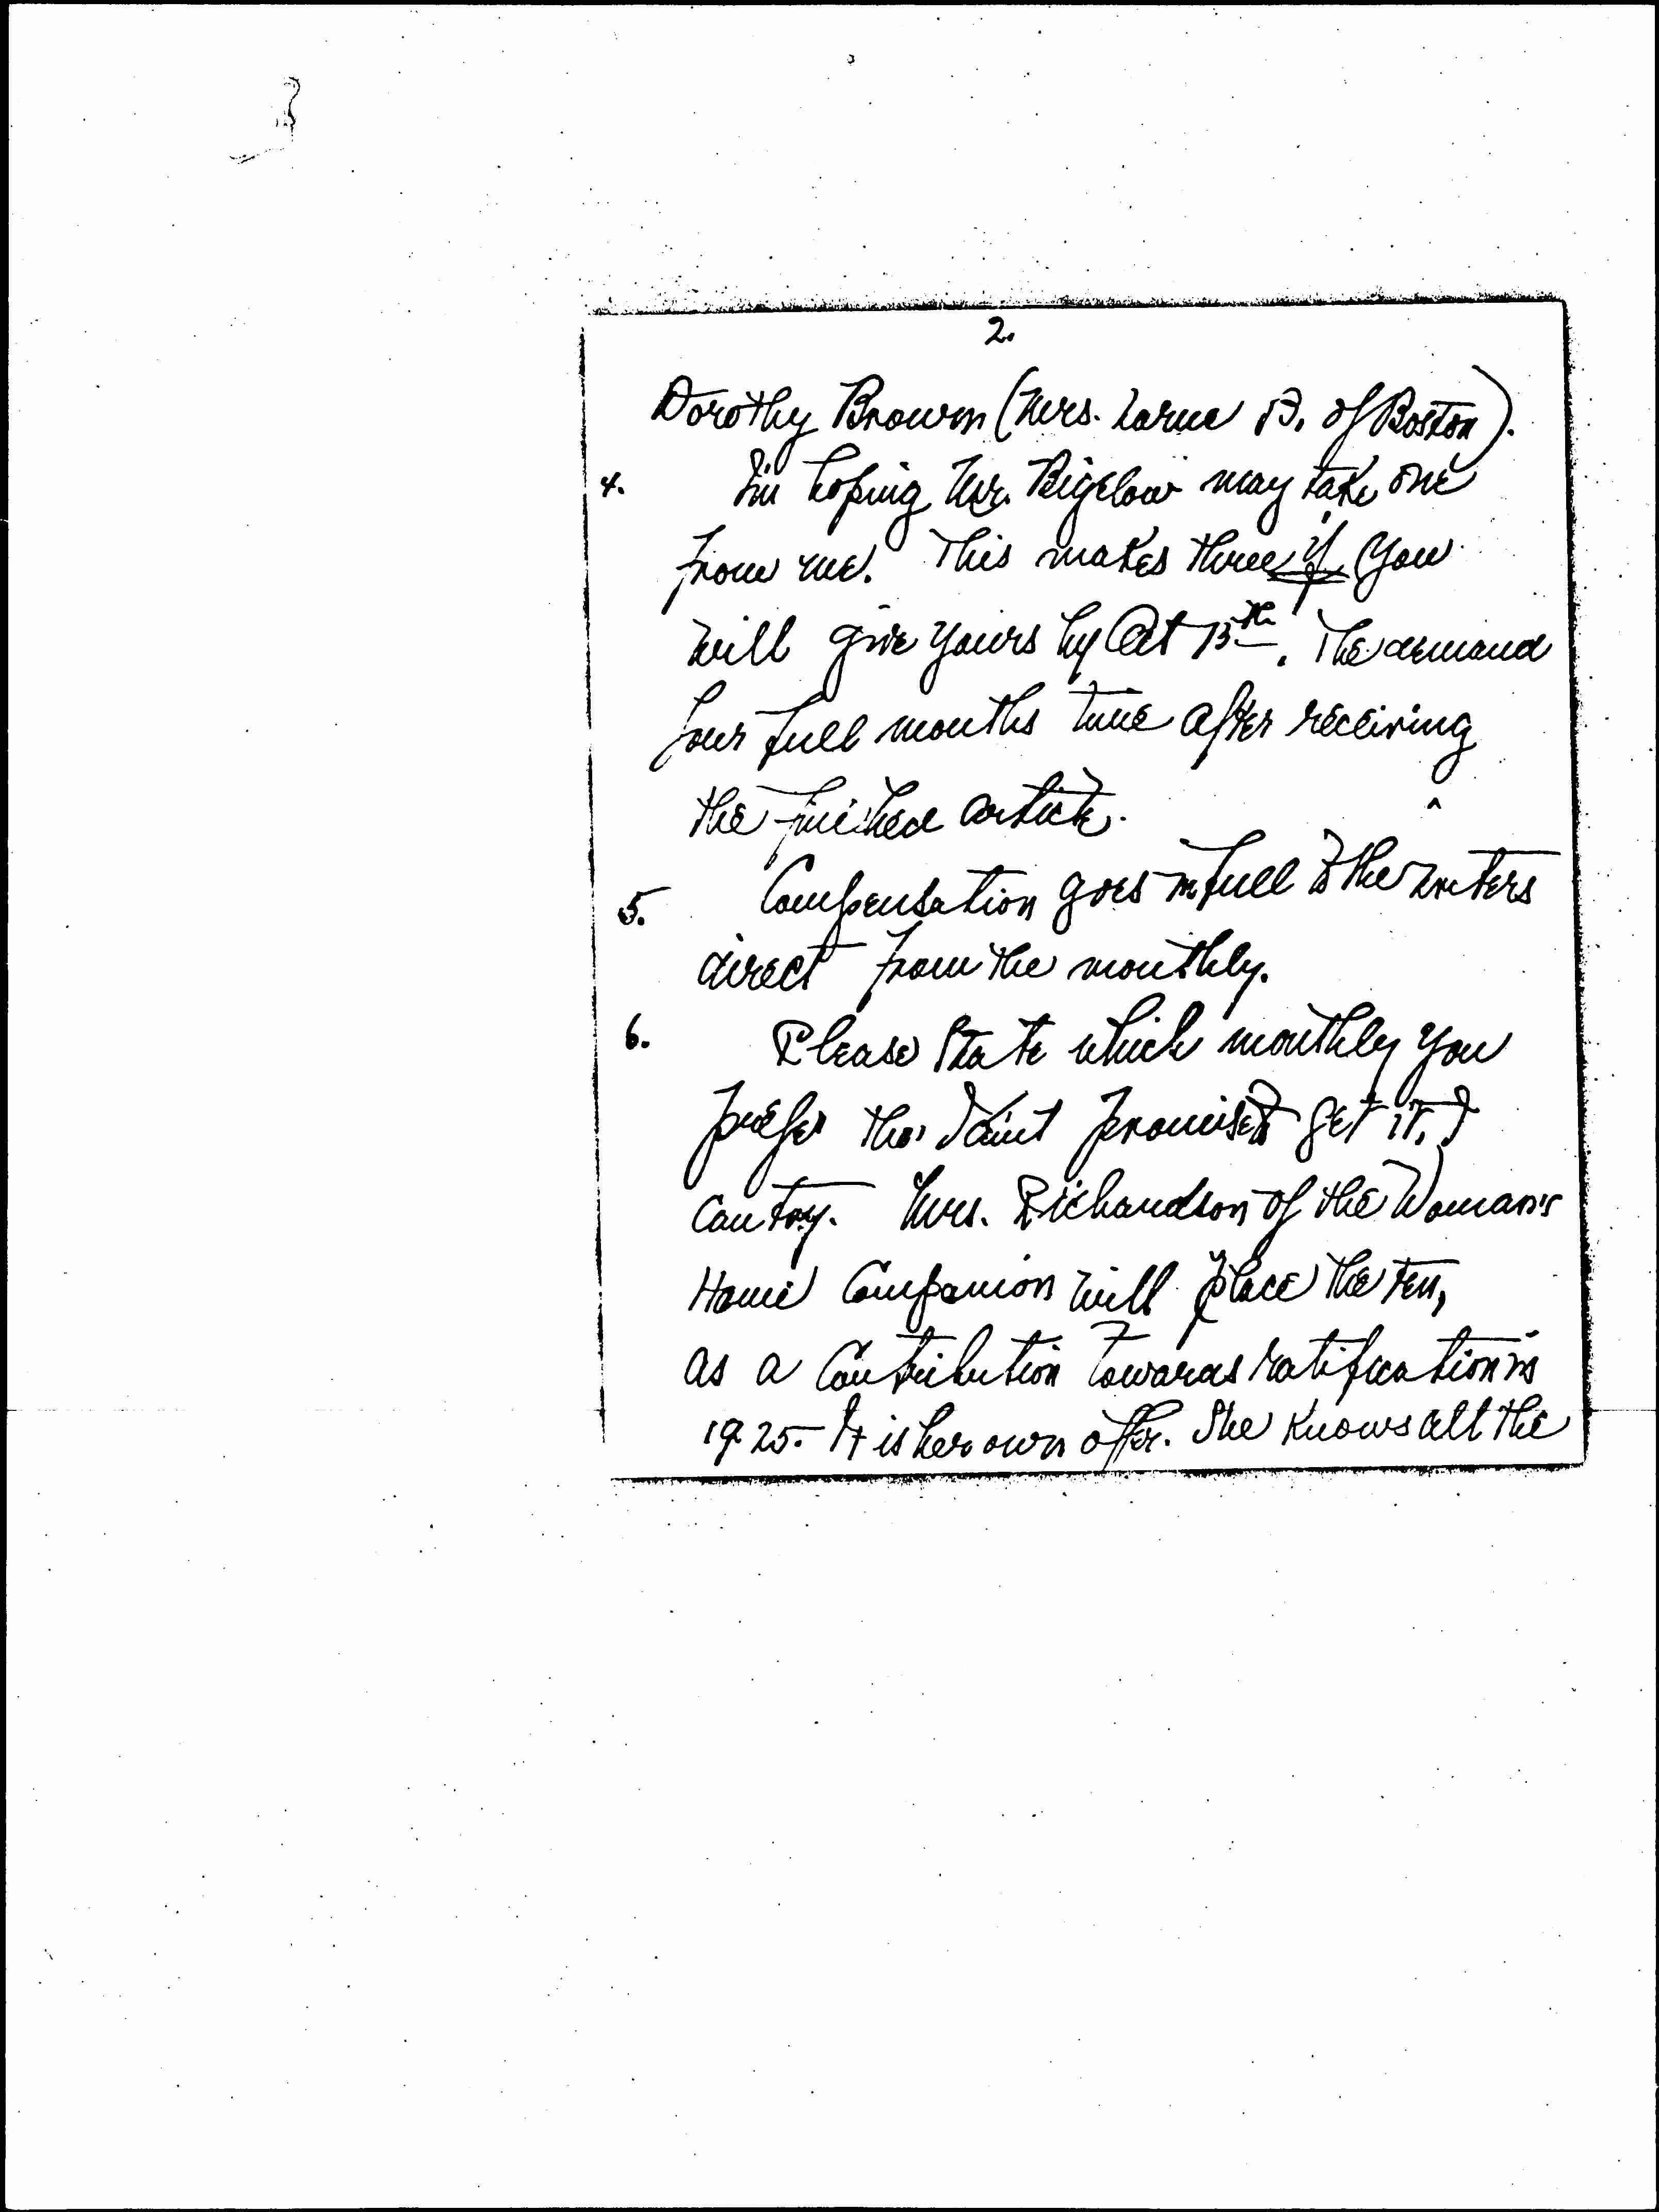 2.
Dorothy Brown (Mrs. Larue B. of Boston).
4. I'm hoping Mr. Bigelow may take one
from me. This makes three if you
will give yours by Oct 15th. The demand
four full months time after receiving
the finished article.
5. Compensation goes in full to the writers
direct from the monthly.
6. Please State which monthly you
prefer tho' I can't promise to get it. I
can try. Mrs. Richardson of the Woman's
Home Companion will place the ten,
as a Contribution towards ratification in
1925. It is her own offer. She knows all the